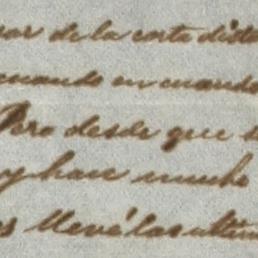 sar de la corta dista
cuando en cuando
Pero desde que s
y hace mucho
es llevé las ultim